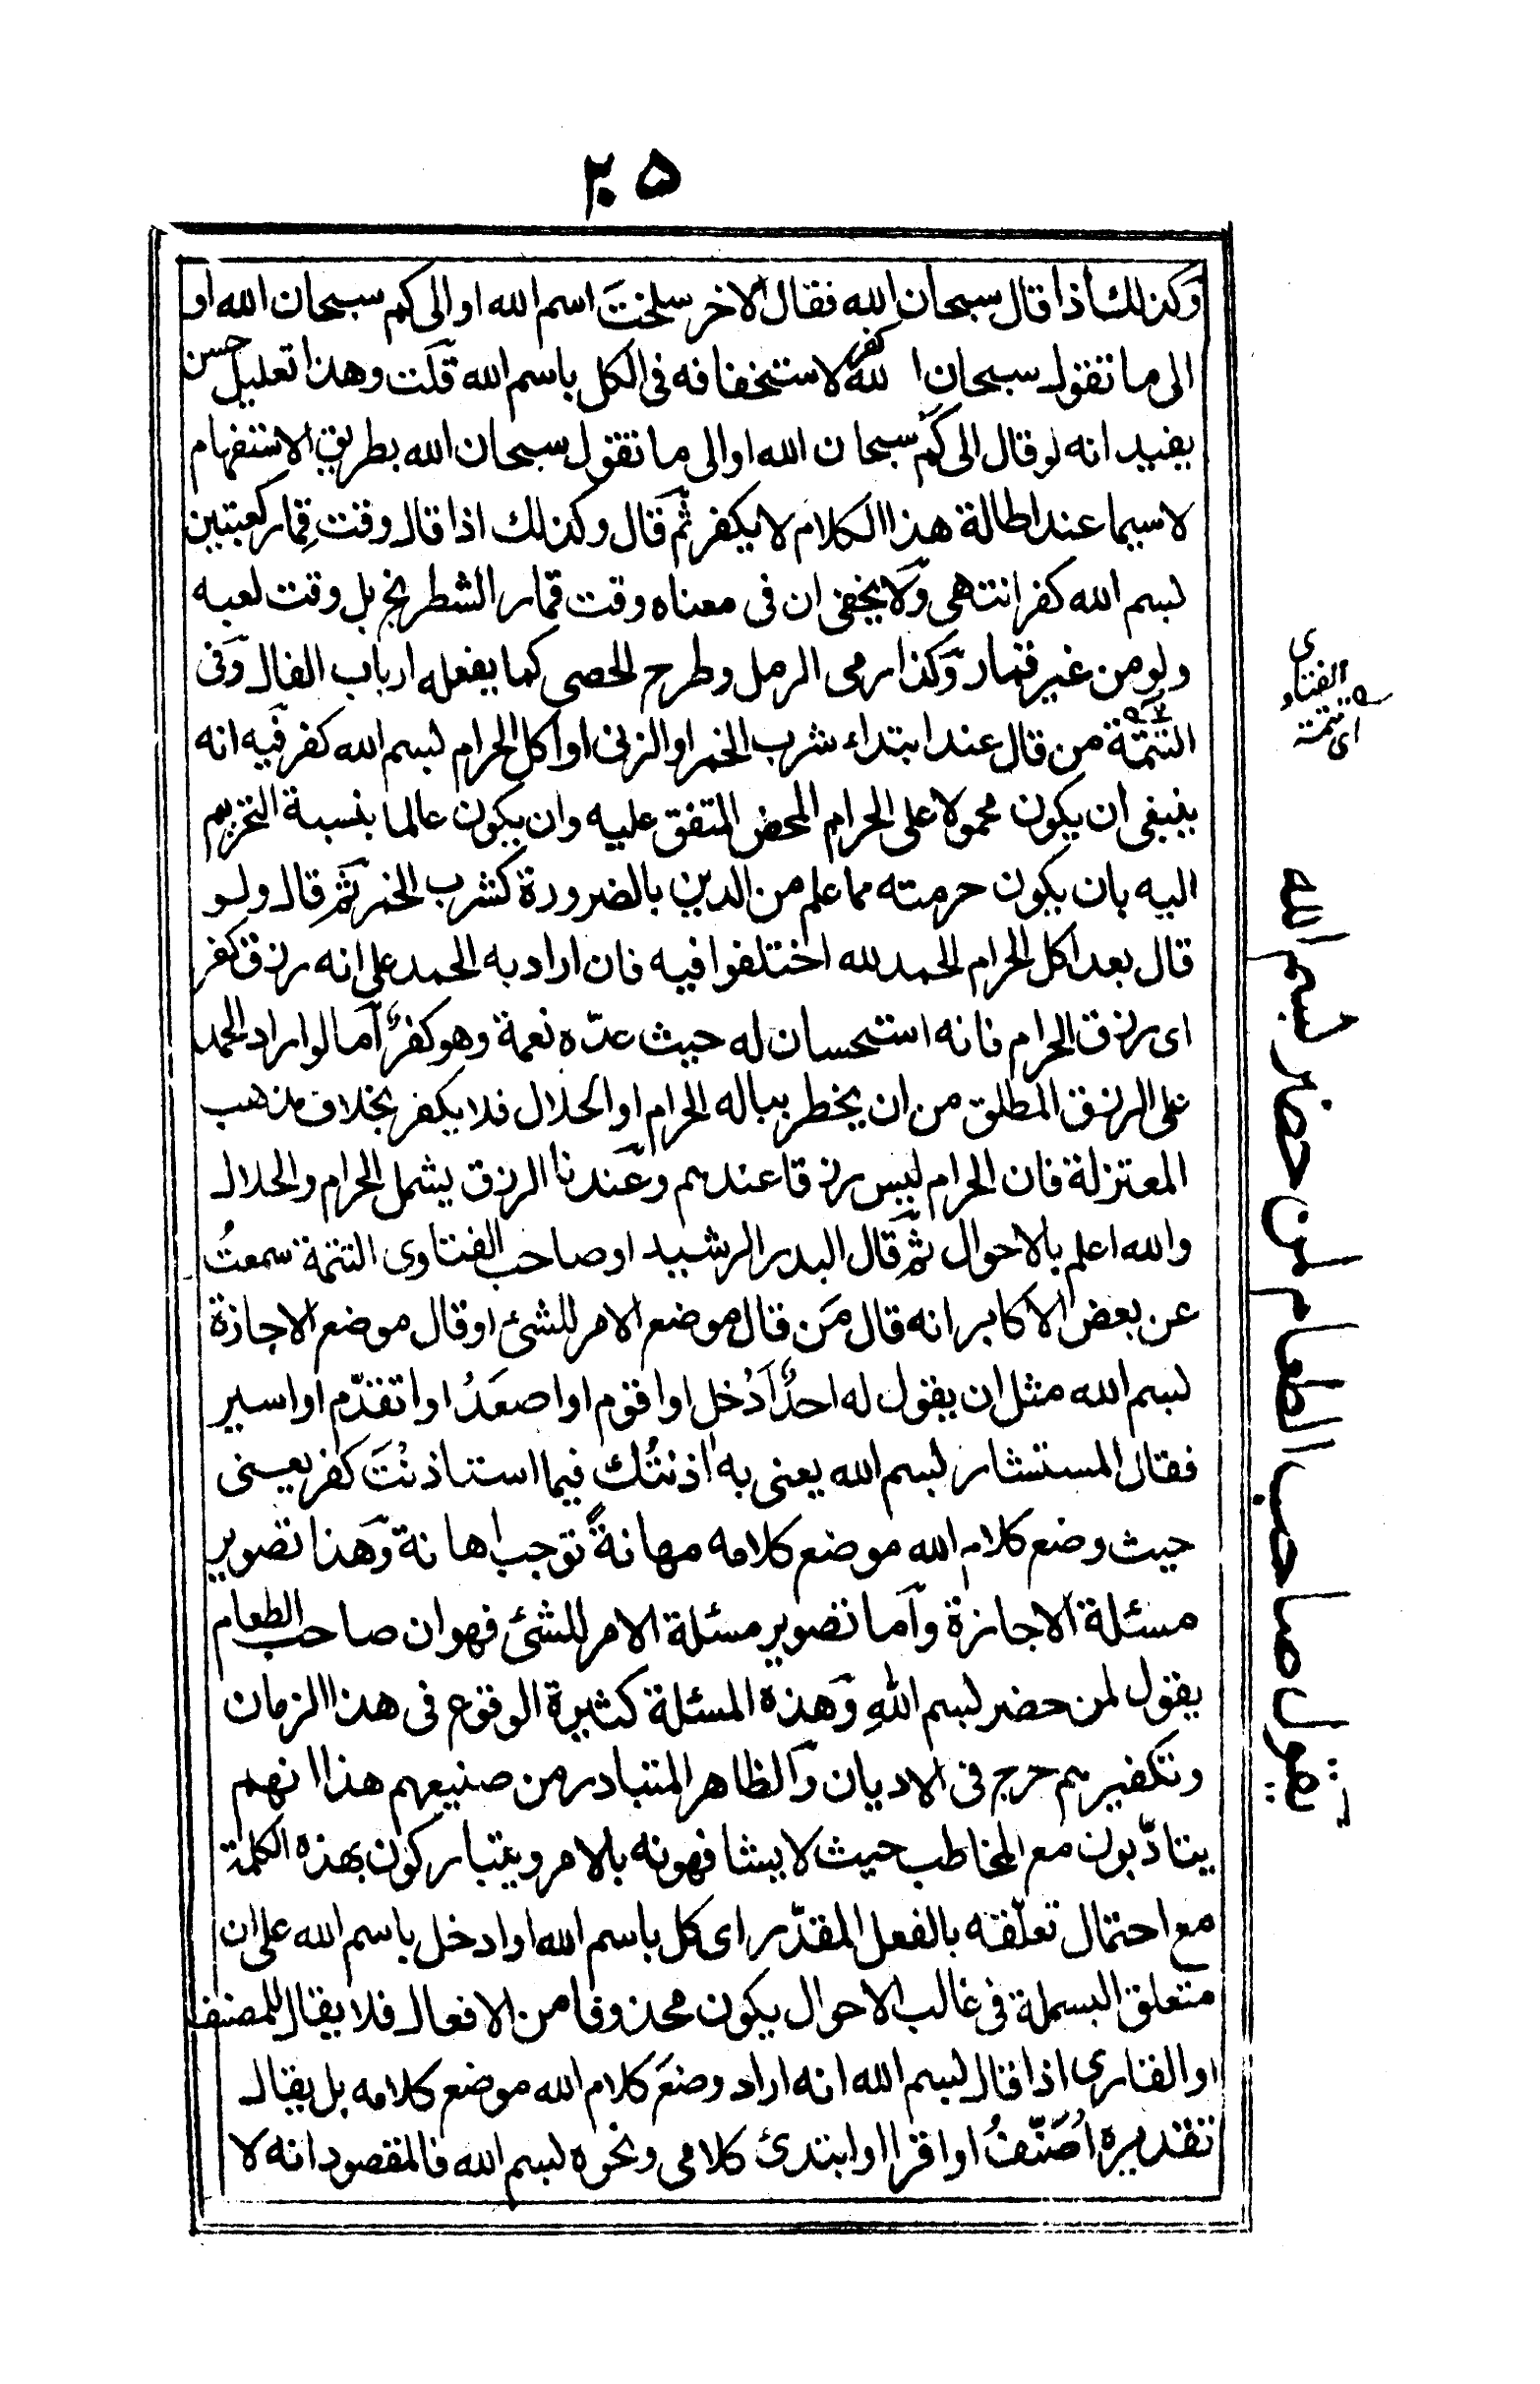 ٢٠٥
وكذلك اذا قال سبحان الله فقال الاخر سلختَ اسم الله او الى كم سبحان الله او
الى ما تقول سبحان الله كفر لاستخفافه فى الكل باسم الله قلت وهذا تعليل حسن
يفيد انه لو قال الى كم سبحان الله او الى ما تقول سبحان الله بطريق الاستفهام
لا سيما عند اطالة هذا الكلام لا يكفر ثم قال وكذلك اذا قال وقت قمار كعبتين
بسم الله كفر انتهى ولا يخفى ان فى معناه وقت قمار الشطرنج بل وقت لعبه
ولو من غير قمار وكذا رمى الرمل وطرح الحصى كما يفعله ارباب الفال وفى
التتمّة من قال عند ابتداء شرب الخمر او الزنى او اكل الحرام بسم الله كفر فيه انه
ينبغى ان يكون محمولا على الحرام المحض المتفق عليه وان يكون عالما بنسبة التحريم
اليه بان يكون حرمته مما علم من الدين بالضرورة كشرب الخمر ثم قال ولو
قال بعد اكل الحرام الحمد لله اختلفوا فيه فان اراد به الحمد على انه رزق كفر
اى رزق الحرام فانه استحسان له حيث عدّه نعمة وهو كفرٌ اما لو اراد الحمد
على الرزق المطلق من ان يخطر بباله الحرام او الحلال فلا يكفر بخلاف مذهب
المعتزلة فان الحرام ليس رزقا عندهم وعندنا الرزق يشمل الحرام والحلال
والله اعلم بالاحوال ثم قال البدر الرشيد او صاحب الفتاوى التتمة سمعتُ
عن بعض الاكابر انه قال مَن قال موضع الامر للشئ او قال موضع الاجازة
بسم الله مثل ان يقول له احدٌ اَدْخل او اقوم او اصعَدُ او اتقدّم او اسير
فقال المستشار بسم الله يعنى به اذنتُك فيما استاذنْتَ كفر يعنى
حيث وضع كلام الله موضع كلامه مهانةً توجب اهانة وهذا تصوير
مسئلة الاجازة واما تصوير مسئلة الامر للشئ فهو ان صاحب الطعام
يقول لمن حضر بسم اللهِ وهذه المسئلة كثيرة الوقوع فى هذا الزمان
وتكفيرهم حرج فى الاديان والظاهر المتبادر من صنيعهم هذا انهم
يتادّبون مع المخاطب حيث لا يشافهونه بالامر ويتباركون بهذه الكلمة
مع احتمال تعلّقه بالفعل المقدّر اى كل باسم الله او ادخل باسم الله على ان
متعلق البسملة فى غالب الاحوال يكون محذوفا من الافعال فلا يقال للمصنف
او القارى اذا قال بسم الله انه اراد وضعَ كلام الله موضع كلامه بل يقال
تقديره اُصَنّفُ او اقرا او ابتدئ كلامى ونحوه بسم الله فالمقصود انه لا
اى تتمة
الفتاوى
يقول صاحب الطعام لمن حضر بسم الله